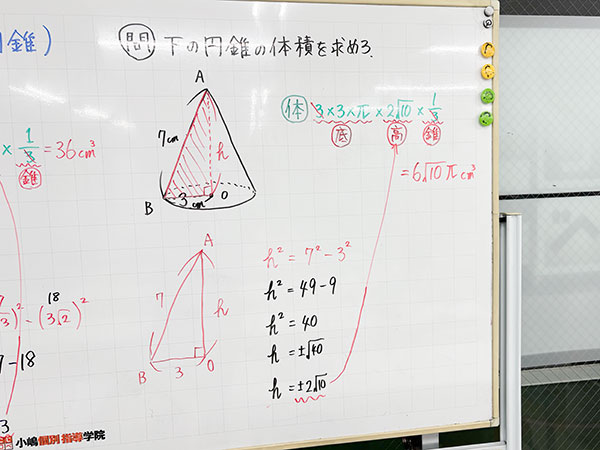 錐)
問 下の円錐の体積を求めろ.
A
7cm
h
B 3cm O
体 3×3×π×2√10×1/3
底 高 錐
= 6√10π cm³
× 1/3 = 36cm³
錐
A
7
h
B 3 O
h² = 7² - 3²
h² = 49 - 9
h² = 40
h = ±√40
h = ±2√10
18
3)² - (3√2)²
- 18
3
小嶋個別指導学院